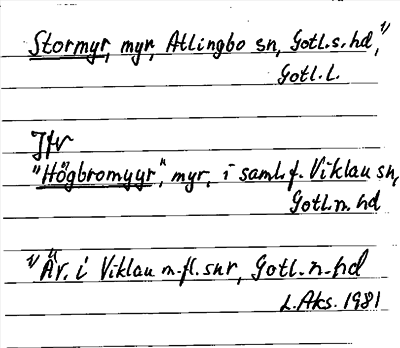 Stormyr, myr, Atlingbo sn, Gotl.s.hd,¹⁾
Gotl.l.
Jfr
"Högbromyyr", myr, i saml.f. Viklau sn,
Gotl.n. hd
¹⁾ Äv. i Viklau m.fl. snr, Gotl.n.hd
L.Aks. 1981